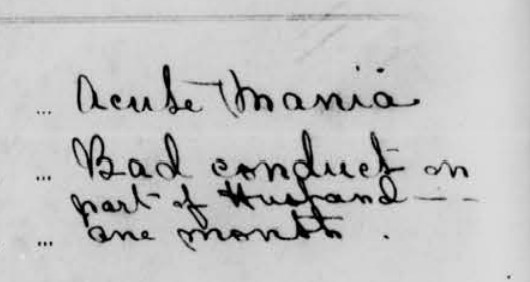 ... Acute Mania
... Bad conduct on
part of Husband — -
... one month .